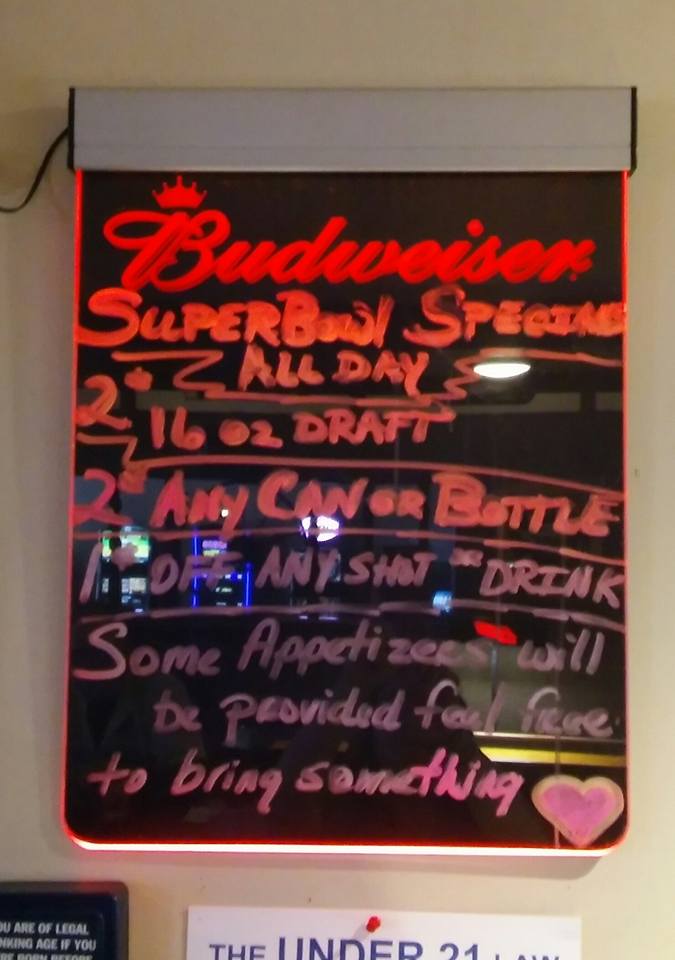 Budweiser
SUPERBowl SPECIALS
ALL DAY
2 16 oz DRAFT
2 ANY CAN OR BOTTLE
1 OFF ANY SHOT OR DRINK
Some Appetizers will
be provided feel free
to bring something
OU ARE OF LEGAL
NKING AGE IF YOU
RE BORN BEFORE
THE UNDER 21 LAW